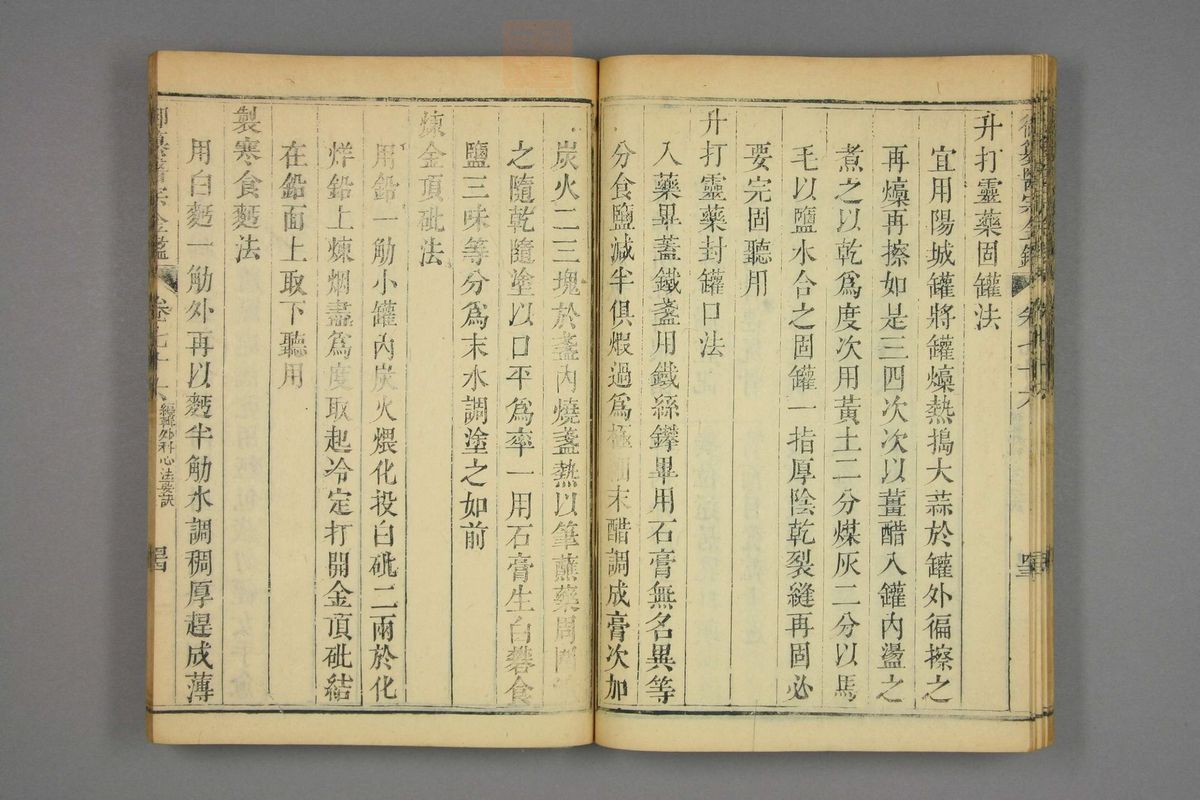 升打靈藥固罐法
宜用陽城罐將罐燥熱搗大蒜於罐外徧擦之
再燥再擦如是三四次次以薑醋入罐內盪之
煮之以乾爲度次用黃土二分煤灰二分以馬
毛以鹽水合之固罐一指厚陰乾裂縫再固必
要完固聽用
升打靈藥封罐口法
入藥畢蓋鐵盞用鐵絲攀畢用石膏無名異等
分食鹽減半俱煅過爲極細末醋調成膏次加
炭火二三塊於盞內燒盞熱以筆蘸藥周
之隨乾隨塗以口平爲率一用石膏生白礬食
鹽三味等分爲末水調塗之如前
煉金頂砒法
用鉛一觔小罐內炭火煨化投白砒二兩於化
烊鉛上煉烟盡爲度取起冷定打開金頂砒結
在鉛面上取下聽用
製寒食麪法
用白麪一觔外再以麪半觔水調稠厚趕成薄
御纂醫宗金鑑
卷七十六
編輯外科心法要訣